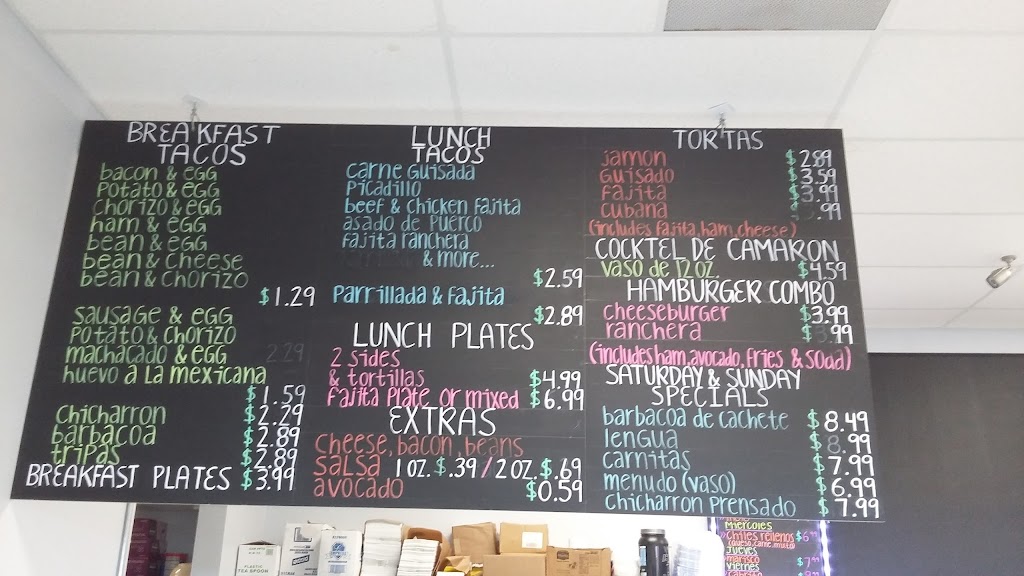 BREAKFAST
TACOS
bacon & EGG
POTATO & EGG
CHORIZO & EGG
ham & EGG
bean & EGG
bean & Cheese
bean & Chorizo
$1.29
SAUSAGE & EGG
POTATO & CHORIZO
machacado & EGG 2.29
huevo a la mexicana
$1.59
Chicharron $2.29
barbacoa $2.89
tripas $2.89
BREAKFAST PLATES $3.99
LUNCH
TACOS
Carne Guisada
Picadillo
beef & Chicken Fajita
asado de Puerco
fajita ranchera
& more...
$2.59
Parrillada & Fajita
$2.89
LUNCH PLATES
2 sides
& tortillas $4.99
Fajita Plate or mixed $6.99
EXTRAS
Cheese, bacon, beans
SALSA 1 OZ. $.39 / 2 OZ. $.69
avocado $0.59
TORTAS
Jamon $2.89
Guisado $3.59
Fajita $3.99
Cubana .99
(includes fajita, ham, cheese)
COCKTEL DE CAMARON
Vaso de 12 oz. $4.59
HAMBURGER COMBO
Cheeseburger $3.99
ranchera $ .99
(includes ham, avocado, fries & soda)
SATURDAY & SUNDAY
SPECIALS
barbacoa de cachete $8.49
lengua $8.99
carnitas $7.99
menudo (vaso) $6.99
Chicharron Prensado $7.99
PLASTIC
TEA SPOON
Miercoles
Chiles rellenos $6
(queso, carne, mixto)
Jueves
Viernes